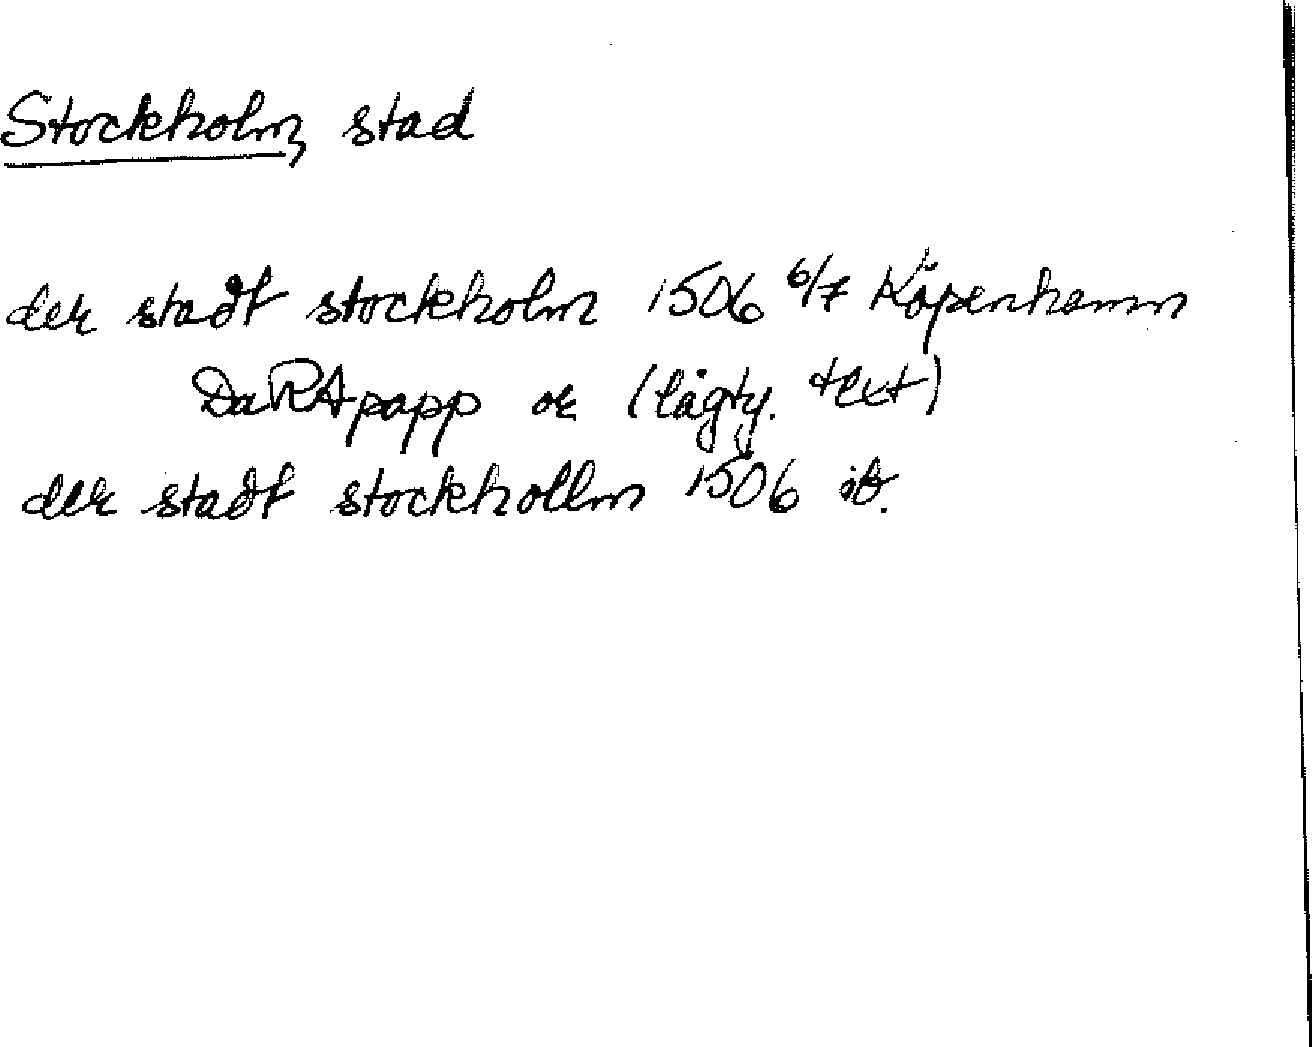 Stockholm, stad
der stadt stockholm 1506 6/7 Köpenhamn
DaRA papp or (lågty. text)
der stadt stockhollm 1506 ib.